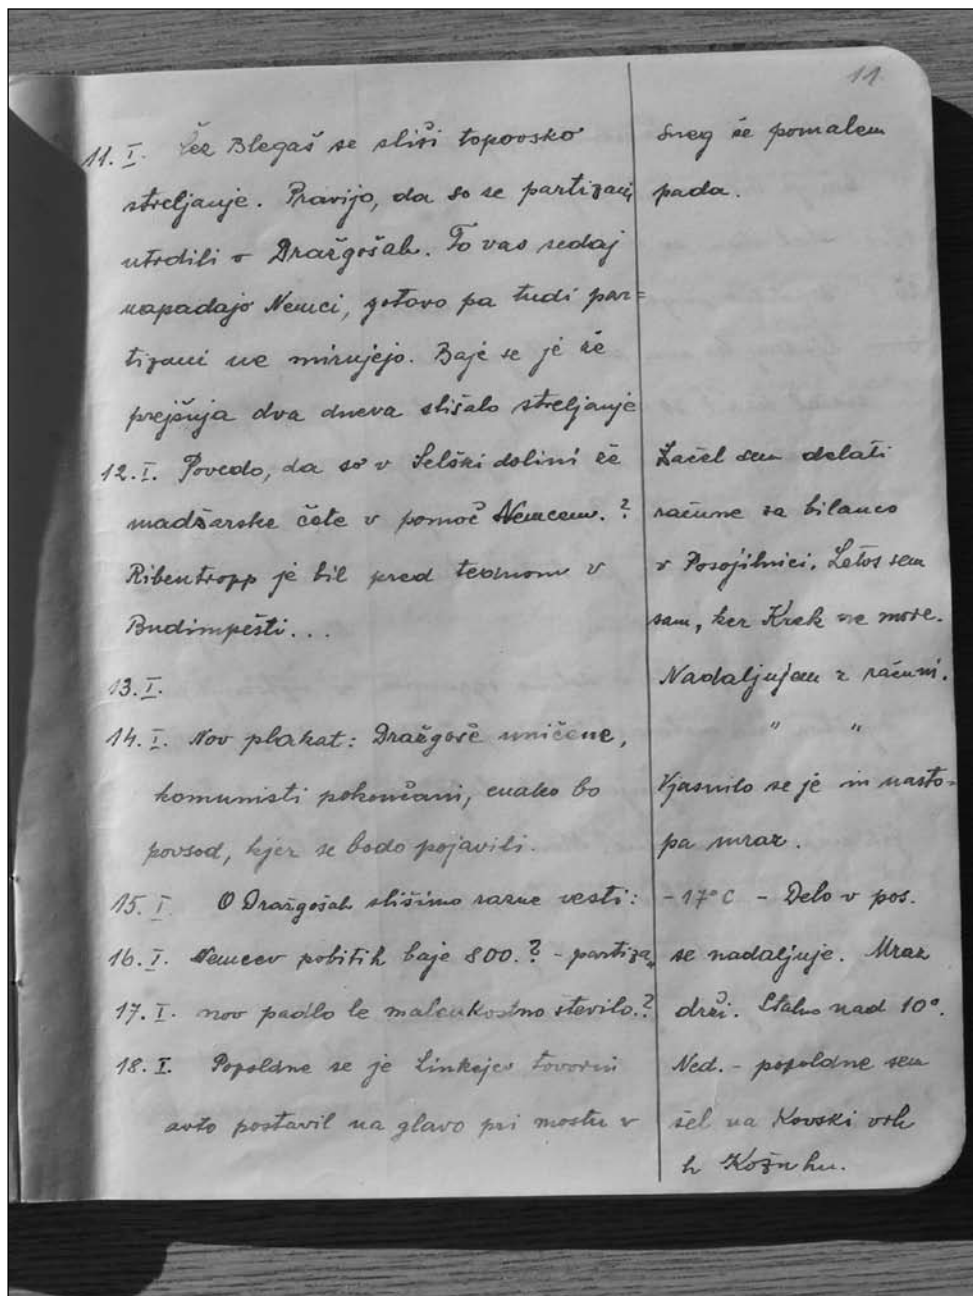 11.
11. I. Čez Blegaš se sliši topovsko
streljanje. Pravijo, da so se partizani
utrdili v Dražgošah. To vas sedaj
napadajo Nemci, gotovo pa tudi par=
tizani ne mirujejo. Baje se je že
prejšnja dva dneva slišalo streljanje
12. I. Povedo, da so v Selški dolini že
madžarske čete v pomoč Nemcem. ?
Ribentropp je bil pred tednom v
Budimpešti...
13. I.
14. I. Nov plakat: Dražgoše uničene,
komunisti pokončani, enako bo
povsod, kjer se bodo pojavili.
15. I. O Dražgošah slišimo razne vesti:
16. I. Nemcev pobitih baje 800.? - partiza,,
17. I. nov padlo le malenkostno število.?
18. I. Popoldne se je Linkejev tovorni
avto postavil na glavo pri mostu v
Sneg še pomalem
pada.
Začel sem delati
račune za bilanco
v Posojilnici. Letos sem
sam, ker Krek ne more.
Nadaljujem z računi.
" "
Vjasnilo se je in nasto-
pa mraz.
-17°C - Delo v pos.
se nadaljuje. Mraz
drži. Stalno nad 10°.
Ned. - popoldne sem
šel na Kovski vrh
k Kožuhu.